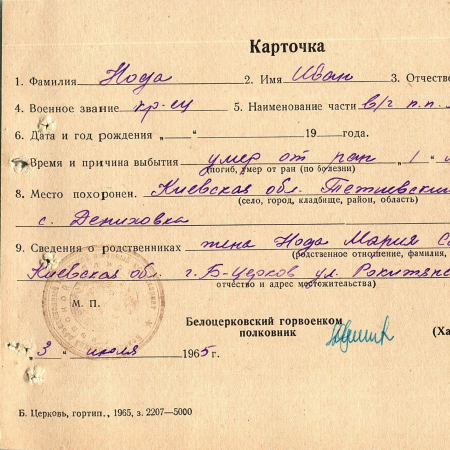 Карточка
1. Фамилия Нода 2. Имя Иван 3. Отчество
4. Военное звание кр-ец 5. Наименование части в/г п.п.
6. Дата и год рождения „ “ 19 года.
Время и причина выбытия умер от ран „1“
(погиб, умер от ран (по болезни)
8. Место похоронен. Киевская обл. Тетиевский
(село, город, кладбище, район, область)
с. Дениховка
9. Сведения о родственниках жена Нода Мария
(родственное отношение, фамилия,
Киевская обл. г. Б-Церков ул. Рокитянс
отчество и адрес мостожительства)
М. П.
Белоцерковский горвоенком
полковник (Ха
„3“ июля 1965 г.
Б. Церковь, гортип., 1965, з. 2207—5000